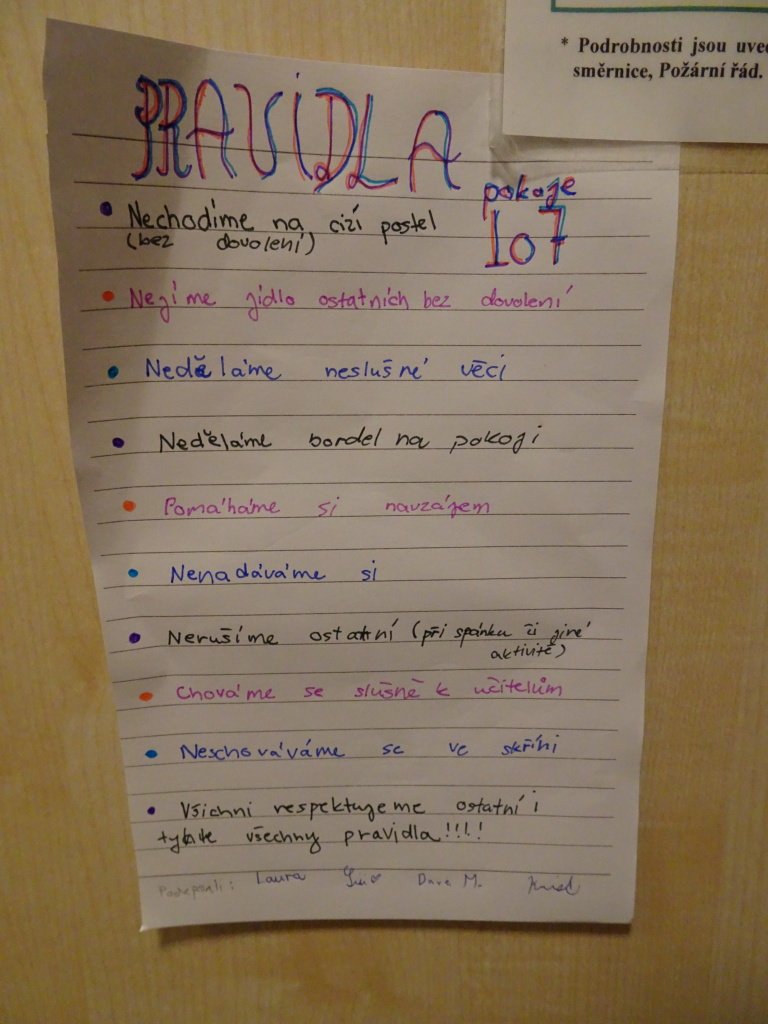 * Podrobnosti jsou uved
směrnice, Požární řád.
PRAVIDLA
pokoje
107
• Nechodíme na cizí postel
(bez dovolení)
• Nejíme jídlo ostatních bez dovolení
• Neděláme neslušné věci
• Neděláme bordel na pokoji
• Pomáháme si navzájem
• Nenadáváme si
• Nerušíme ostatní (při spánku či jiné
aktivitě)
• Chováme se slušně k učitelům
• Neschováváme se ve skříni
• Všichni respektujeme ostatní i
tyhle všechny pravidla!!!!
Podepsali: Laura Dave M.